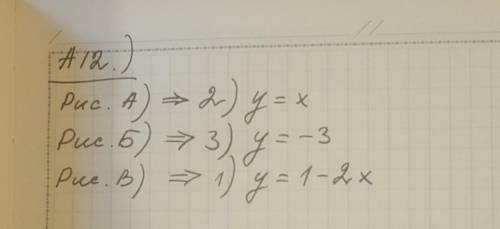 А12.)
Рис. А) ⇒ 2) y = x
Рис. Б) ⇒ 3) y = -3
Рис. В) ⇒ 1) y = 1 - 2x